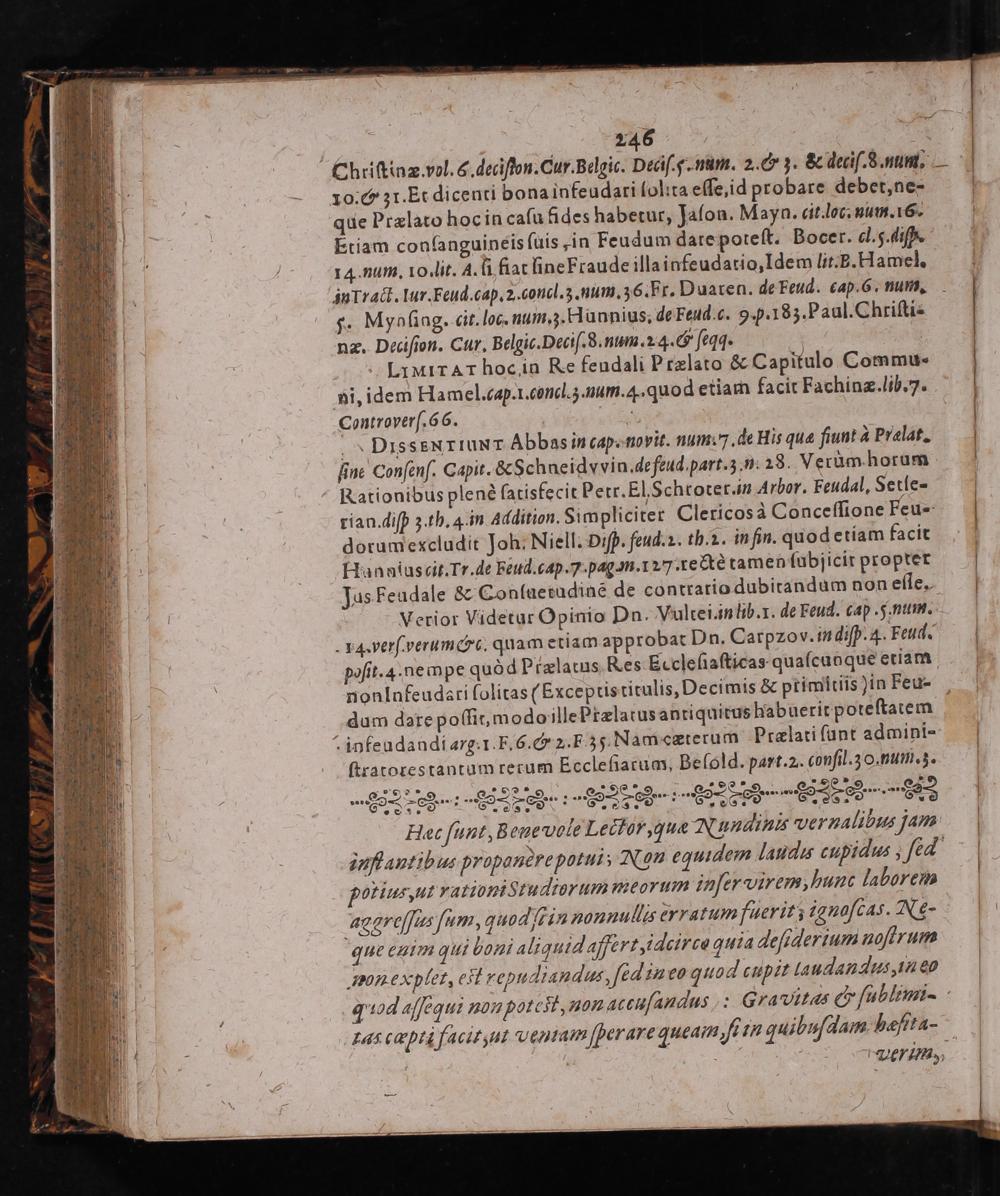 246
Chriſtinæ.vol. 6.deciſſion.Cur.Belgic. Deciſ.5..num. 2.& 3. & deciſ.8.num.
10.& 31.Et dicenti bona infeudari ſolita eſſe,id probare debet,ne-
que Prælato hoc in caſu fides habetur, Jaſon. Mayn. cit.loc. num.16.
Etiam conſanguineis ſuis ,in Feudum dare poteſt. Bocer. cl.5.diſp.
14.num. 10.lit. A. ſi fiat ſine Fraude illa infeudatio,Idem lit.B.Hamel.
inTract. Iur.Feud.cap.2.concl.3.num.36.Fr. Duaren. de Feud. cap.6. num.
5. Mynſing. cit.loc. num.3.Hunnius, de Feud.c. 9.p.183.Paul.Chriſti-
næ. Deciſion. Cur. Belgic.Deciſ.8.num.24.& ſeqq.
LIMITAT hoc,in Re feudali Prælato & Capitulo Commu-
ni, idem Hamel.cap.1.concl.3.num.4.quod etiam facit Fachinæ.lib.7.
Controverſ.66.
DISSENTIUNT Abbas in cap. novit. num.7.de His quæ fiunt à Prælat.
ſine Conſenſ. Capit. &Schneidvvin.de feud.part.3.n. 28. Verùm horum
Rationibus plenè ſatisfecit Petr.El.Schroter.in Arbor. Feudal, Setſe-
rian.diſp 3.th. 4.in Addition. Simpliciter Clericos à Conceſſione Feu-
dorum excludit Joh. Niell. Diſp. feud.2. th.2. in fin. quod etiam facit
Hunnius cit.Tr.de Feud.cap.7.pag.m.127.rectè tamen ſubjicit propter
Jus Feudale & Conſuetudinē de contrario dubitandum non eſſe.
Verior Videtur Opinio Dn. Vultei.in lib.1. de Feud. cap .5.num.
14.verſ.verum &c, quam etiam approbat Dn. Carpzov. in diſp. 4. Feud.
poſit.4.nempe quòd Prælatus Res Eccleſiaſticas quaſcunque etiam
nonInfeudari ſolitas (Exceptis titulis, Decimis & primitiis )in Feu-
dum dare poſſit,modo ille Prælatus antiquitus habuerit poteſtatem
infeudandi arg.1.F.6.& 2.F.35.Nam cæterum Prælati ſunt admini-
ſtratores tantum rerum Eccleſiarum, Beſold. part.2. conſil.30.num.3.
Hæc ſunt, Benevole Lector,quæ Nundinis vernalibus jam
inſtantibus proponere potui; Non equidem laudis cupidus , ſed
potius,ut rationi Studiorum meorum inſervirem,hunc laborem
aggreſſus ſum, quod ſi in nonnullis erratum fuerit, ignoſcas. Ne-
que enim qui boni aliquid affert,idcirco quia deſiderium noſtrum
non explet, eſt repudiandus, ſed in eo quod cupit laudandus,in eo
quod aſſequi non poteſt, non accuſandus : Gravitas & ſublimi-
tas cœpti facit,ut veniam ſperare queam,ſi in quibuſdam hæſita-
verim,